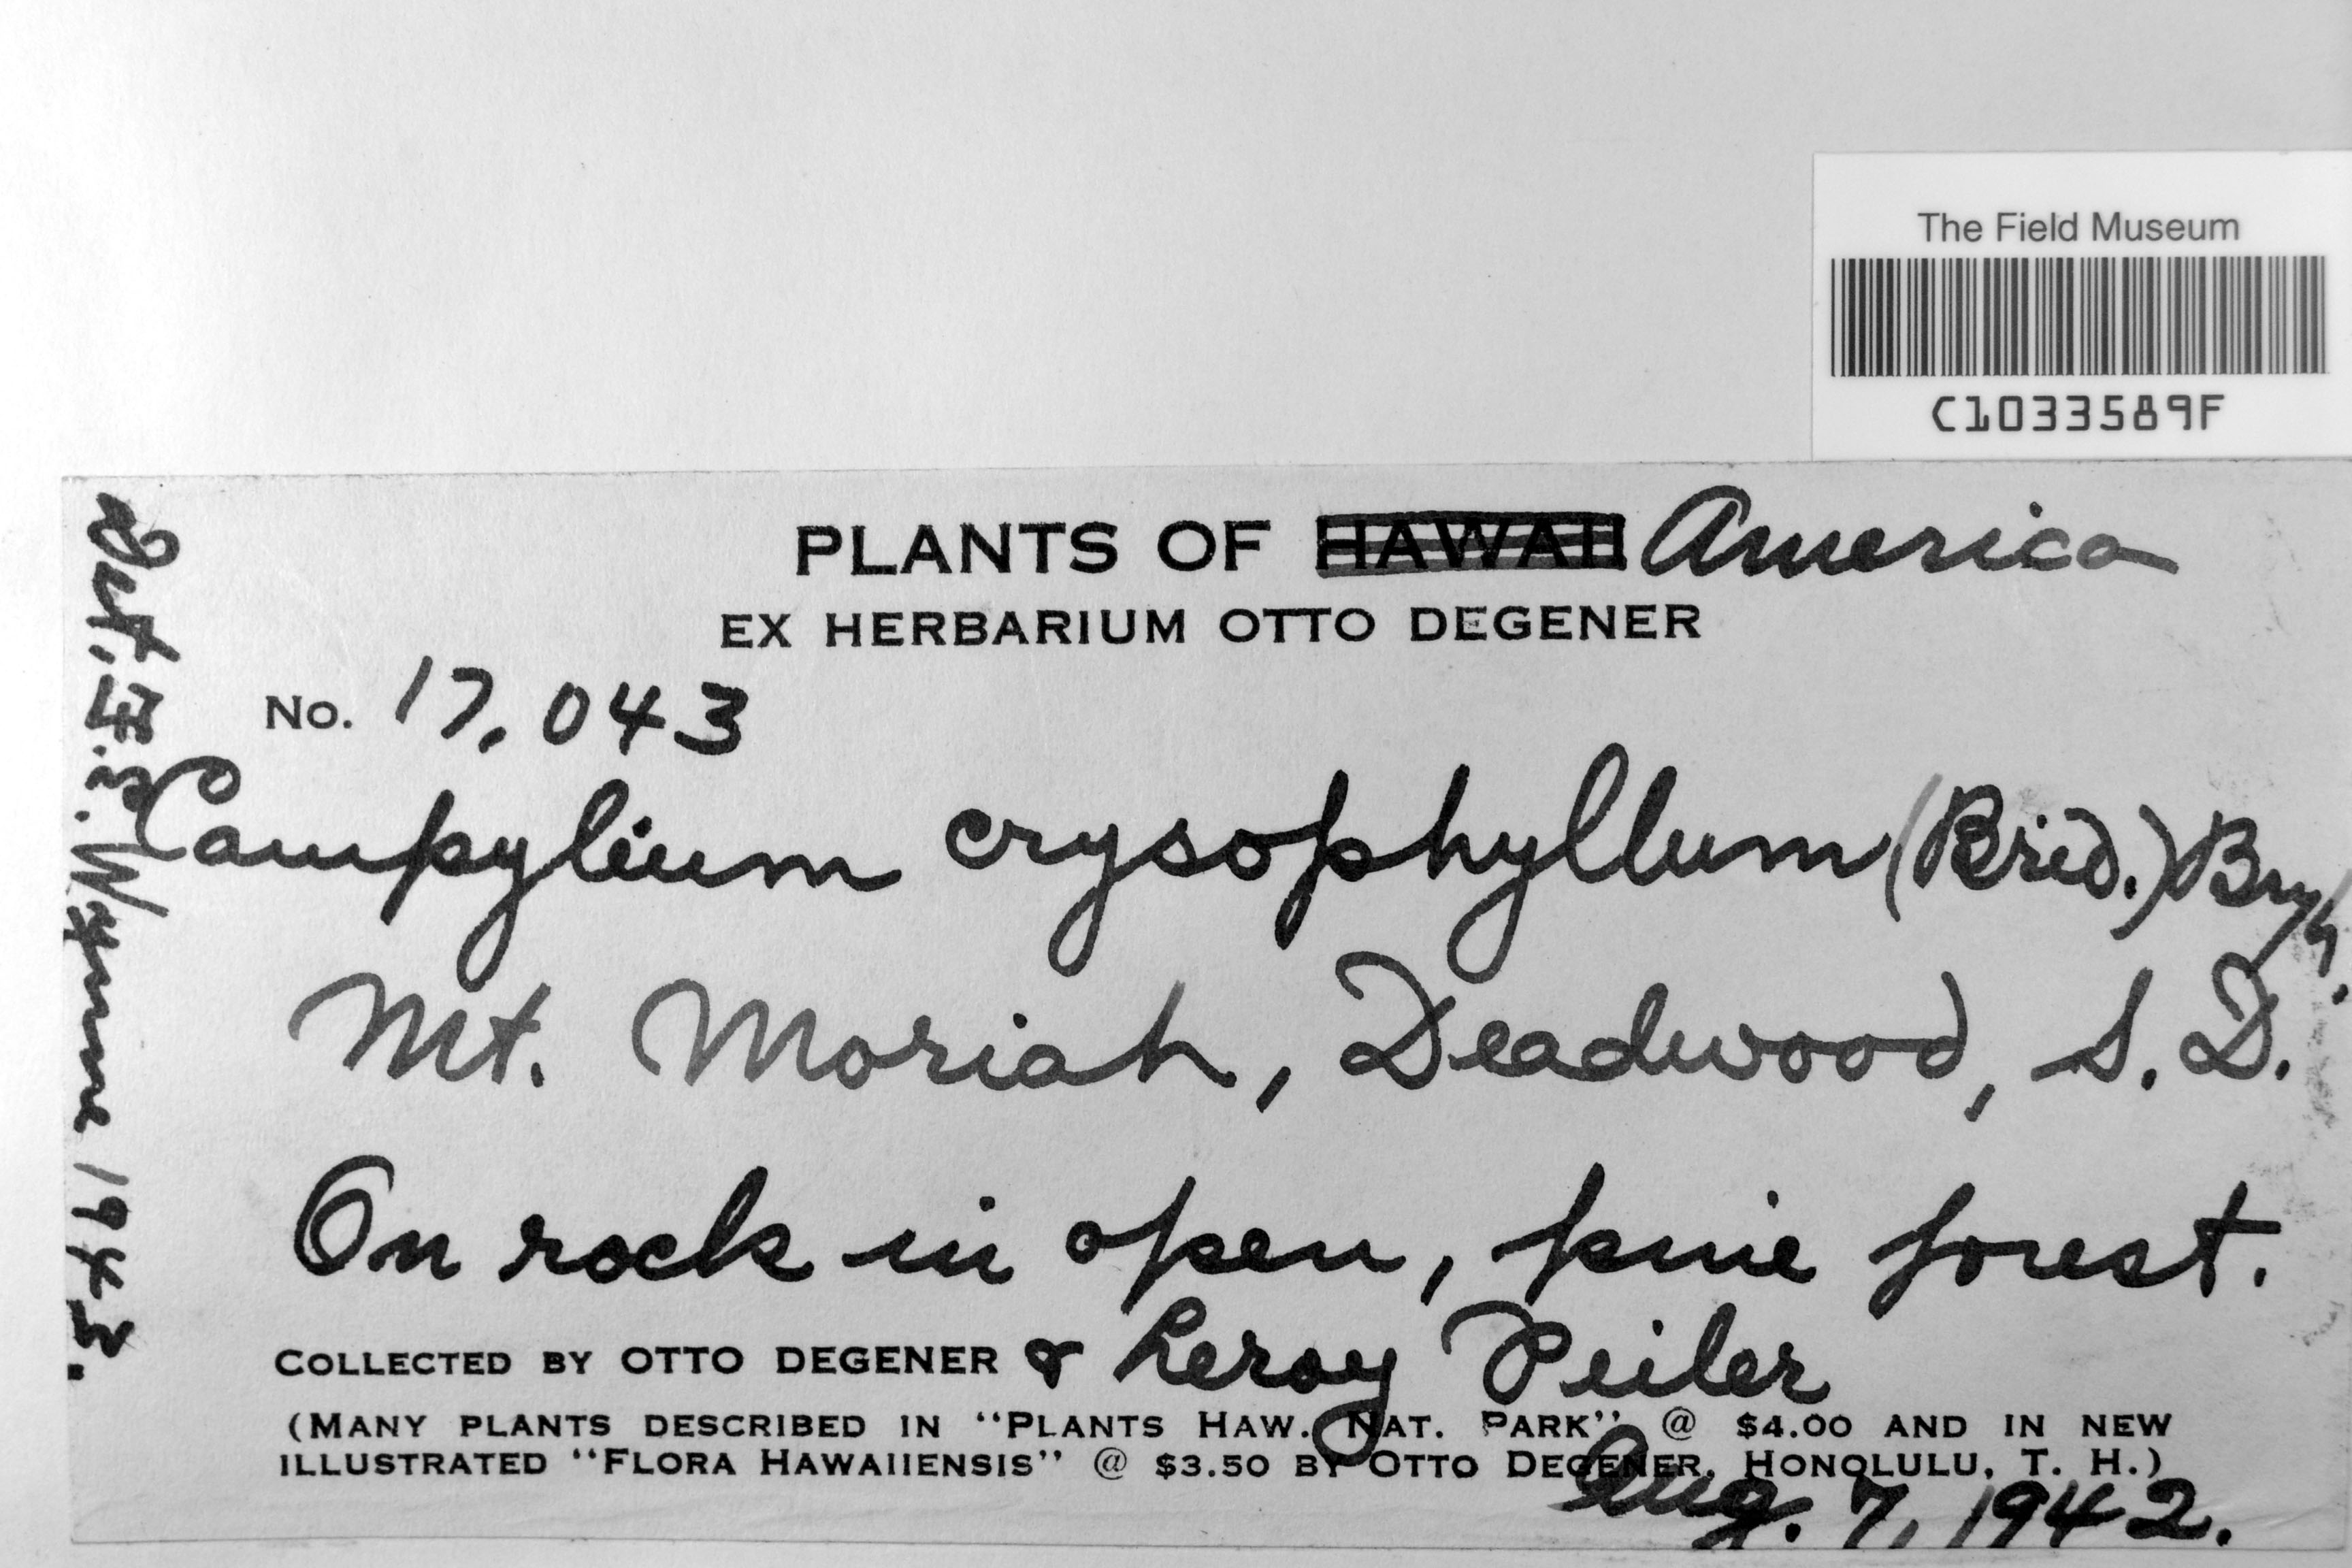 The Field Museum
C1033589F
PLANTS OF HAWAII America
EX HERBARIUM OTTO DEGENER
No. 17,043
Campylium crysophyllum (Brid.) Bryh.
Mt. Moriah, Deadwood, S. D.
On rock in open, pine forest.
COLLECTED BY OTTO DEGENER & Leroy Peiler
(MANY PLANTS DESCRIBED IN "PLANTS HAW. NAT. PARK" @ $4.00 AND IN NEW
ILLUSTRATED "FLORA HAWAIIENSIS" @ $3.50 BY OTTO DEGENER, HONOLULU, T. H.)
Aug. 7, 1942.
Det. F. E. Wynne 1943.